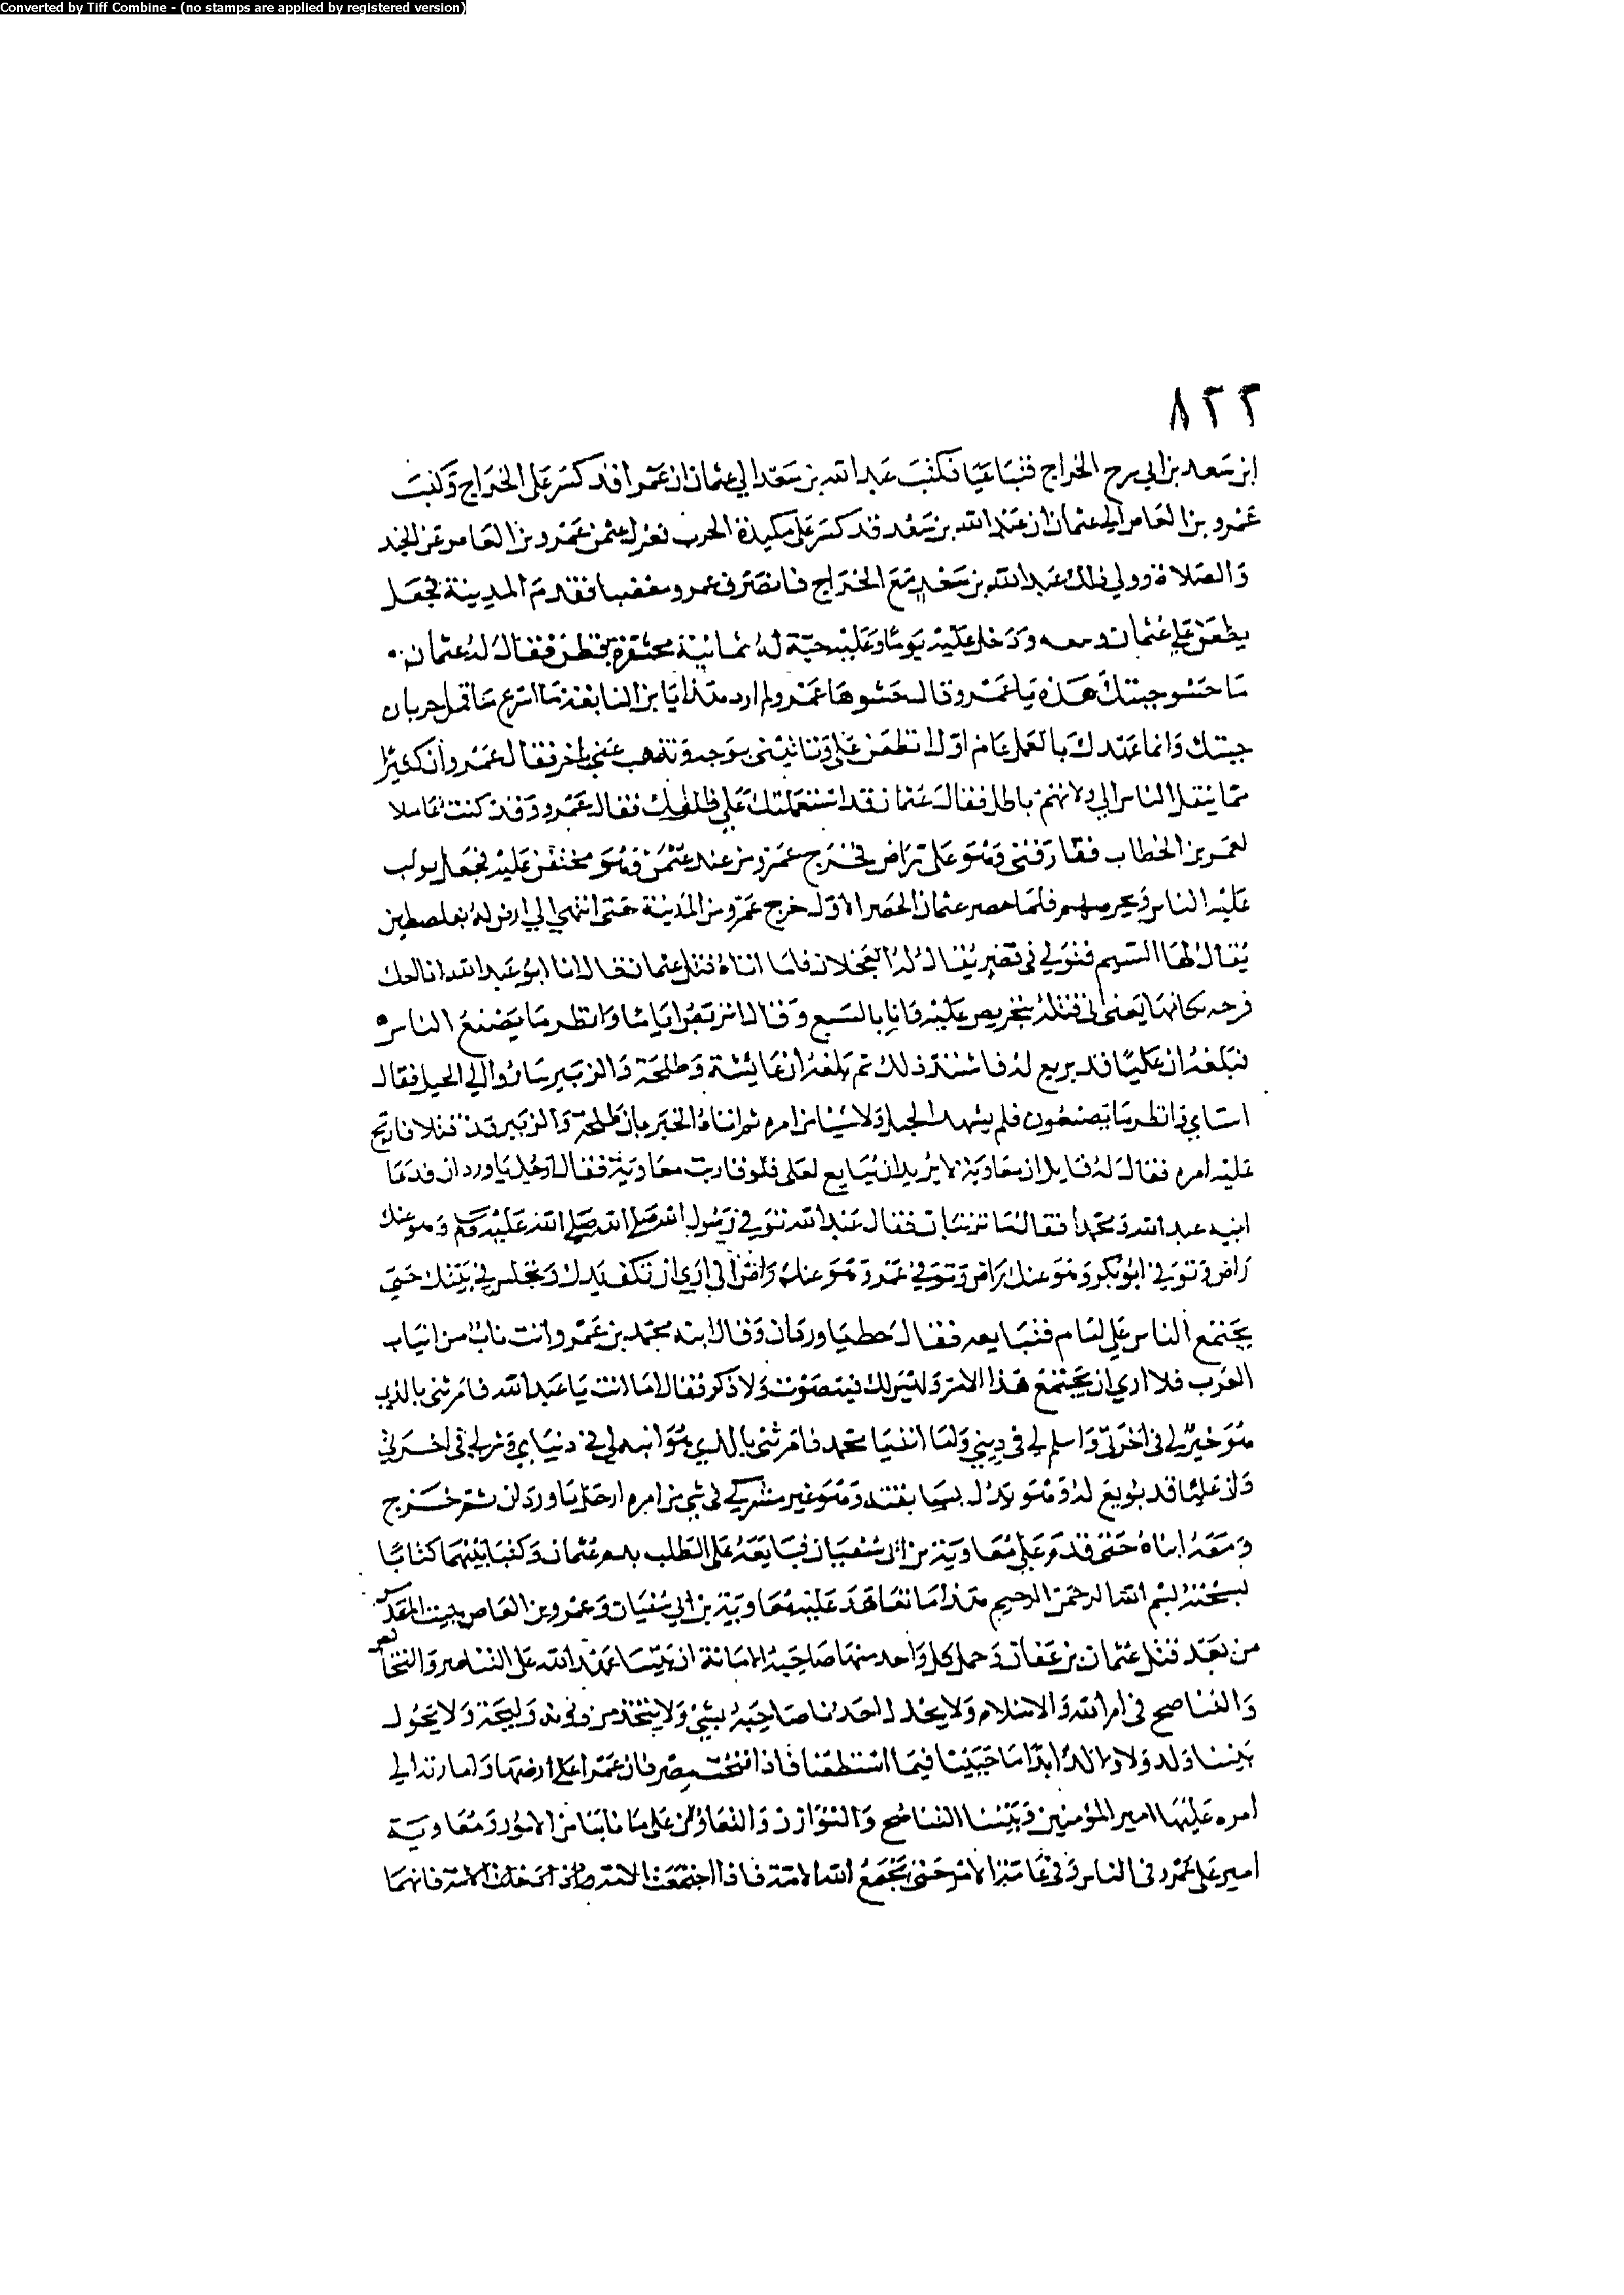 Converted by Tiff Combine - (no stamps are applied by registered version)
٨٢٢
ابن سعد بن ابي سرح الخراج فتباغيا فكتب عبد الله بن سعد الي عثمان ان عمرا قد كسر علي الخراج وكتب
عمرو بن العاص الي عثمان ان عبد الله بن سعد قد كسر علي مكيدة الحرب فعزل عثمن عمرو بن العاص عن الجند
والصلاة وولي ذلك عبد الله بن سعد مع الخراج فانصرف عمرو مغضبا فقدم المدينة فجعل
يطعن علي عثمان ودخل عليه يوما وعليه جبة له يمانية محشوة بقطن فقال له عثمان
ما حشو جبتك هذه يا عمرو قال حشوها عمرو ولم ارد هذا يا بن النابغة ما اسرع ما قمل جربان
جبتك وانما عهدك بالعمل عام اول اتطعن علي وتاتيني بوجه وتذهب عني باخر فقال عمرو ان كثيرا
مما ينقل الناس الي ولاتهم باطل فقال عثمان قد استعملتك علي ظلعك فقال عمرو وقد كنت عاملا
لعمر بن الخطاب ففارقني وهو علي راض فخرج عمرو من عند عثمن وهو محتقن عليه فجعل يولب
عليه الناس ويحرضهم فلما حصر عثمان الحصر الاول خرج عمرو من المدينة حتي انتهي الي ارض له بفلسطين
يقال لها السبع فنزل في قصر يقال له العجلان فلما اتاه قتل عثمان قال انا ابو عبد الله انا احك
قرحه نكاتها يعني اني قتلته بتحريضي عليه وانا بالسبع وقال اتربص اياما وانظر ما يصنع الناس
فبلغه ان عليا قد بويع له فاشتد ذلك ثم بلغه ان عائشة وطلحة والزبير ساروا الي الجمل فقال
استاني وانظر ما يصنعون فلم يشهد الجمل ولا شيئا من امره ثم اتاه الخبر بان طلحة والزبير قد قتلا فارتج
عليه امره فقال له قايل ان معاوية لا يريد ان يبايع لعلي فلو قاربت معاوية فقال ارحل يا وردان فدعا
ابنيه عبد الله ومحمدا فقال ما تريان فقال عبد الله توفي رسول الله صلي الله صلي الله عليه وسلم وهو عنك
راض وتوفي ابو بكر وهو عنك راض وتوفي عمر وهو عنك راض اني اري ان تكف يدك وتجلس في بيتك حتي
يجتمع الناس علي امام فتبايعه فقال حط يا وردان وقال ابنه محمد بن عمرو انت ناب من انياب
العرب فلا اري ان يجتمع هذا الامر وليس لك فيه صوت ولا ذكر فقال اما انت يا عبد الله فامرتني بالذي
هو خير لي في اخرتي واسلم لي في ديني واما انت يا محمد فامرتني بالذي هو انبه لي في دنياي وشر لي في اخرتي
وان عليا قد بويع له وهو يدل بسابقته وهو غير مشركي في شي من امره ارحل يا وردان ثم خرج
ومعه ابناه حتي قدم علي معاوية بن ابي سفيان فبايعه علي الطلب بدم عثمان وكتبا بينهما كتابا
نسخته بسم الله الرحمن الرحيم هذا ما تعاهد عليه معاوية بن ابي سفيان وعمرو بن العاص ببيت المقدس
من بعد قتل عثمان بن عفان وحمل كل واحد منهما صاحبه الامانة ان بيننا عهد الله علي التناصر والتخالص
والتناصح في امر الله والاسلام ولا يخذل احدنا صاحبه بشي ولا يتخذ من دونه وليجة ولا يحول
بيننا ولد ولا والد ابدا ما حيينا فيما استطعنا فاذا فتحت مصر فان عمرا علي ارضها وامارته التي
امره عليها امير المؤمنين وبيننا التناصح والتوازر والتعاون علي ما نابنا من الامور ومعاوية
امير علي عمرو في الناس وفي عامة الامر حتي يجمع الله الامة فاذا اجتمعت الامة فانهما